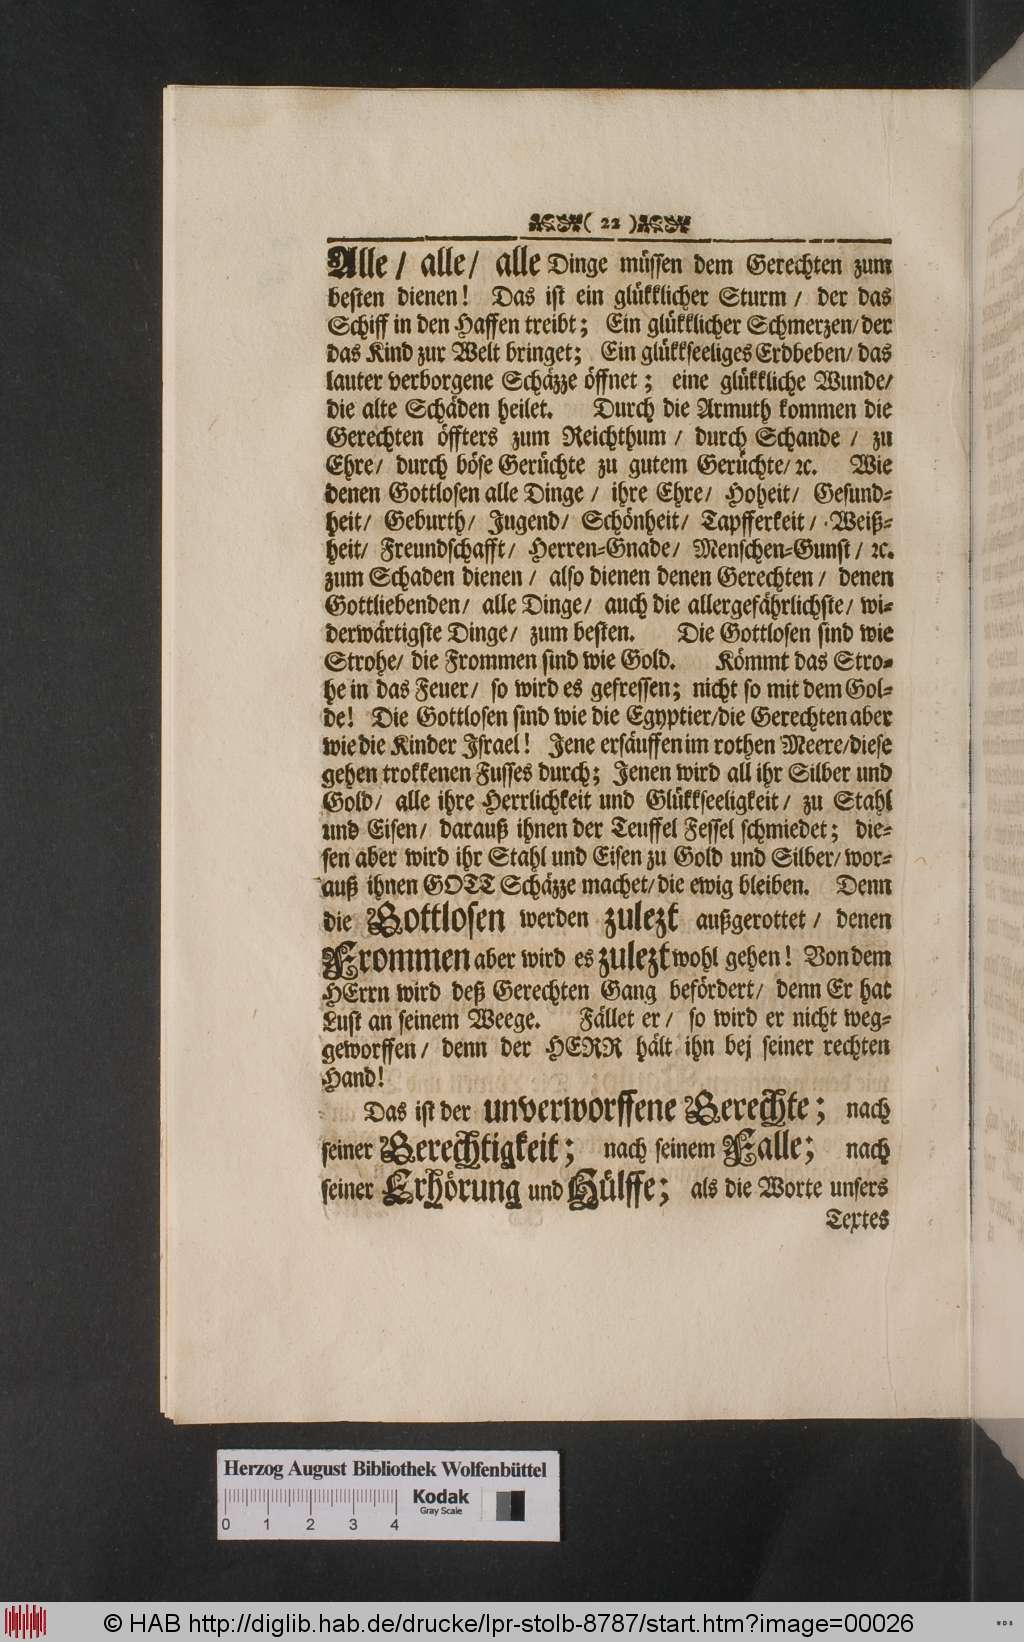 ( 22 )
Alle / alle / alle Dinge müssen dem Gerechten zum
besten dienen! Das ist ein glükklicher Sturm / der das
Schiff in den Haffen treibt; Ein glükklicher Schmerzen / der
das Kind zur Welt bringet; Ein glükkseeliges Erdbeben / das
lauter verborgene Schäzze öffnet; eine glükkliche Wunde /
die alte Schäden heilet. Durch die Armuth kommen die
Gerechten öffters zum Reichthum / durch Schande / zu
Ehre / durch böse Gerüchte zu gutem Gerüchte / ꝛc. Wie
denen Gottlosen alle Dinge / ihre Ehre / Hoheit / Gesund-
heit / Geburth / Jugend / Schönheit / Tapfferkeit / Weiß-
heit / Freundschafft / Herren-Gnade / Menschen-Gunst / ꝛc.
zum Schaden dienen / also dienen denen Gerechten / denen
Gottliebenden / alle Dinge / auch die allergefährlichste / wi-
derwärtigste Dinge / zum besten. Die Gottlosen sind wie
Strohe / die Frommen sind wie Gold. Kömmt das Stro-
he in das Feuer / so wird es gefressen; nicht so mit dem Gol-
de! Die Gottlosen sind wie die Egyptier / die Gerechten aber
wie die Kinder Israel! Jene ersäuffen im rothen Meere / diese
gehen trokkenen Fusses durch; Jenen wird all ihr Silber und
Gold / alle ihre Herrlichkeit und Glükkseeligkeit / zu Stahl
und Eisen / darauß ihnen der Teuffel Fessel schmiedet; die-
sen aber wird ihr Stahl und Eisen zu Gold und Silber / wor-
auß ihnen GOTT Schäzze machet / die ewig bleiben. Denn
die Gottlosen werden zulezt außgerottet / denen
Frommen aber wird es zulezt wohl gehen! Von dem
HErrn wird deß Gerechten Gang befördert / denn Er hat
Lust an seinem Weege. Fället er / so wird er nicht weg-
geworffen / denn der HERR hält ihn bej seiner rechten
Hand!
Das ist der unverworffene Gerechte; nach
seiner Gerechtigkeit; nach seinem Falle; nach
seiner Erhörung und Hülffe; als die Worte unsers
Textes
Herzog August Bibliothek Wolfenbüttel
Kodak
Gray Scale
0 1 2 3 4
© HAB http://diglib.hab.de/drucke/lpr-stolb-8787/start.htm?image=00026